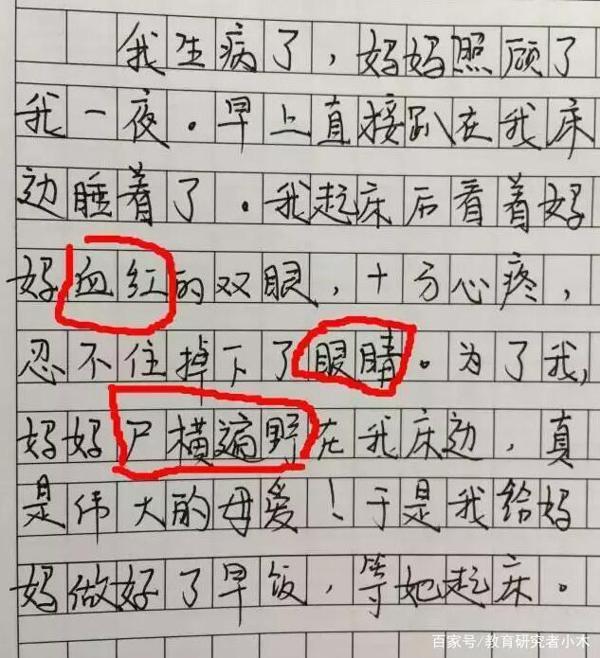 我生病了，妈妈照顾了
我一夜。早上直接趴在我床
边睡着了。我起床后看着妈
妈血红的双眼，十分心疼，
忍不住掉下了眼睛。为了我，
妈妈尸横遍野在我床边，真
是伟大的母爱！于是我给妈
妈做好了早饭，等她起床。
百家号/教育研究者小木